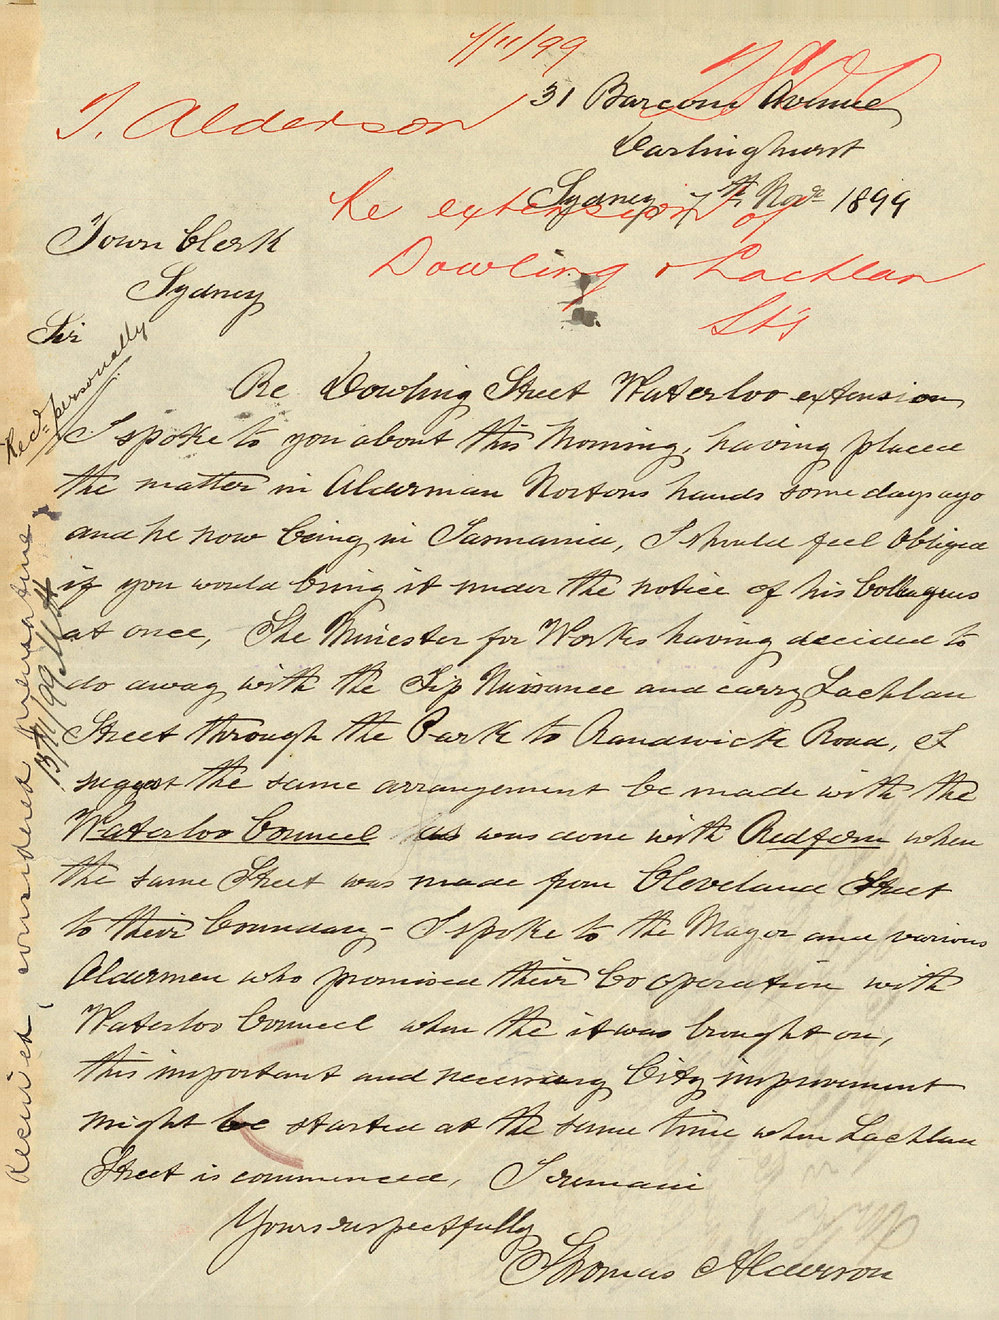 7/11/99
T. Alderson
31 Barcom Avenue
Darlinghurst
Sydney 7th Nov 1899
Re extension of
Dowling & Lachlan
St's
Town Clerk
Sydney
Sir
Recd personally
Re Dowling Street Waterloo extension
I spoke to you about this Morning, having placed
the matter in Alderman Nortons hands some days ago
and he now being in Tasmania, I should feel obliged
if you would bring it under the notice of his Colleagues
at once, The Minister for Works having decided to
do away with the Tip Nuisance and carry Lachlan
Street through the Park to Randwick Road, I
sugest the same arrangement be made with the
Waterloo Council as was done with Redfern when
the same Street was made from Cleveland Street
to their boundary - I spoke to the Mayor and various
Aldermen who promised their Cooperation with
Waterloo Council when the it was brought on,
this important and necessary City improvement
might be started at the same time when Lachlan
Street is commenced, I remain
Yours respectfully
Thomas Alderson
Received, considered premature
13/11/99